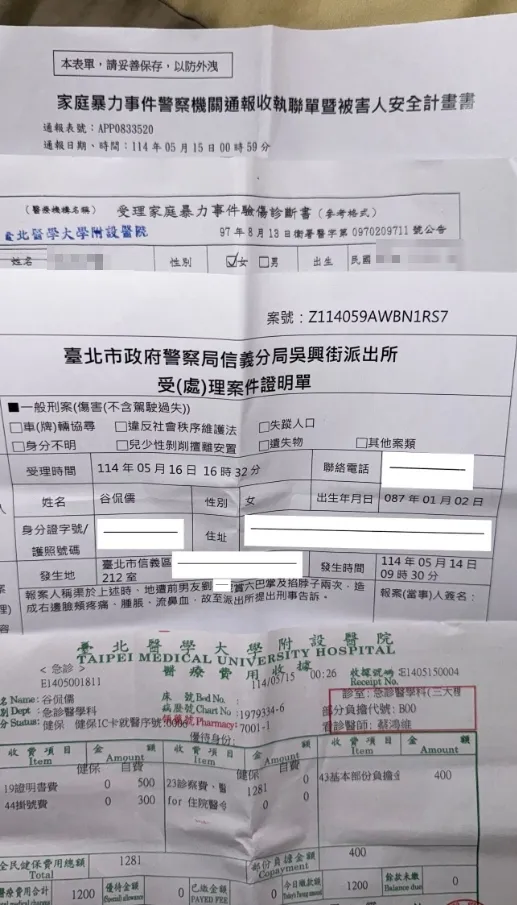 本表單，請妥善保存，以防外洩
家庭暴力事件警察機關通報收執聯單暨被害人安全計畫書
通報表號：APP0833520
通報日期、時間：114 年 05 月 15 日 00 時 59 分
(醫療機構名稱) 受理家庭暴力事件驗傷診斷書(參考格式)
臺北醫學大學附設醫院 97 年 8 月 13 日衛署醫字第 0970209711 號公告
姓名 性別 ☑女 □男 出生 民國
案號：Z114059AWBN1RS7
臺北市政府警察局信義分局吳興街派出所
受(處)理案件證明單
■一般刑案(傷害(不含駕駛過失))
□車(牌)輛協尋 □違反社會秩序維護法 □失蹤人口
□身分不明 □兒少性剝削擅離安置 □遺失物 □其他案類
受理時間 114 年 05 月 16 日 16 時 32 分 聯絡電話
姓名 谷侃儒 性別 女 出生年月日 087 年 01 月 02 日
身分證字號/護照號碼 住址
發生地 臺北市信義區 212 室 發生時間 114 年 05 月 14 日 09 時 30 分
報案人稱渠於上述時、地遭前男友劉 六巴掌及掐脖子兩次，造
成右邊臉頰疼痛、腫脹、流鼻血，故至派出所提出刑事告訴。
報案(當事)人簽名：
臺北醫學大學附設醫院
TAIPEI MEDICAL UNIVERSITY HOSPITAL
<急診> 醫療費用收據
E1405001811 114/05/15 00:26 收據號碼 E1405150004
Receipt No.
名 Name: 谷侃儒 床號 Bed No. 診室: 急診醫學科(三大
別 Dept: 急診醫學科 病歷號 Chart No. 1979334-6 部份負擔代號: B00
分 Status: 健保 健保IC卡就醫序號:0006 領藥號 Pharmacy: 7001-1 看診醫師: 蔡鴻維
優待身份:
收費項目 Item 金額 Amount 收費項目 Item 金額 Amount 收費項目 Item 金額 Amount
健保 自費 健保 自費
19證明書費 0 500 23診察費、醫 1281 0 43基本部份負擔金 400
44掛號費 0 300 for 住院醫令 0 0
全民健保費用總額 Total 1281 部份負擔金額 Copayment 400
醫療費用合計 1200 優待金額 0 已繳金額 PAYED FEE 0 今日繳款額 1200 餘款未繳 Balance due 0